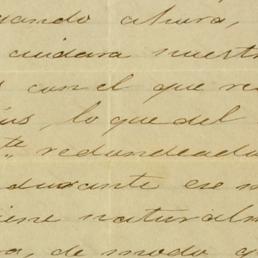 ando ahora,
cuidara nuestr
s con el que re
us, lo que del
te redondeado
durante ese m
iene naturalm
a, de modo q